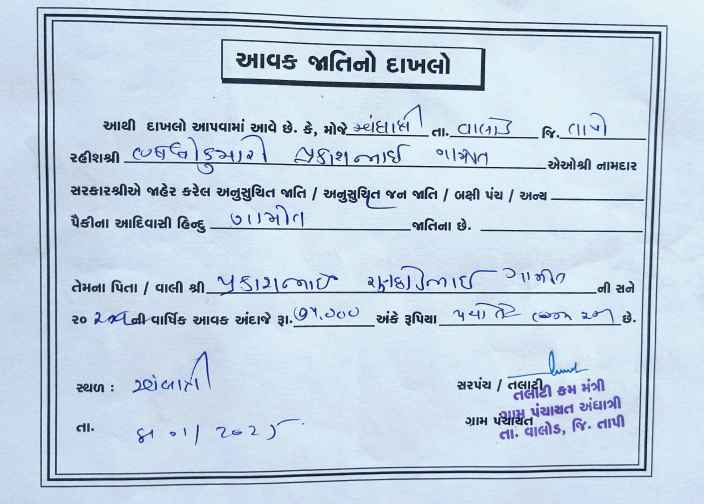 આવક જાતિનો દાખલો
આથી દાખલો આપવામાં આવે છે. કે, મોજે અંધાત્રી તા. વાલોડ જિ. તાપી
રહીશશ્રી પ્રકાશભાઈ ગામીત એઓશ્રી નામદાર
સરકારશ્રીએ જાહેર કરેલ અનુસુચિત જાતિ / અનુસુચિત જન જાતિ / બક્ષી પંચ / અન્ય
પૈકીના આદિવાસી હિન્દુ ગામીત જાતિના છે.
તેમના પિતા / વાલી શ્રી પ્રકાશભાઈ ગામીત ની સને
૨૦ ની વાર્ષિક આવક અંદાજે રૂા. ૭૫,૦૦૦ અંકે રૂપિયા છે.
સ્થળ : અંધાત્રી
સરપંચ / તલાટી
તલાટી કમ મંત્રી
ગ્રામ પંચાયત
ગ્રામ પંચાયત અંધાત્રી
તા. વાલોડ, જિ. તાપી
તા. ૦૧/૨૦૨૫